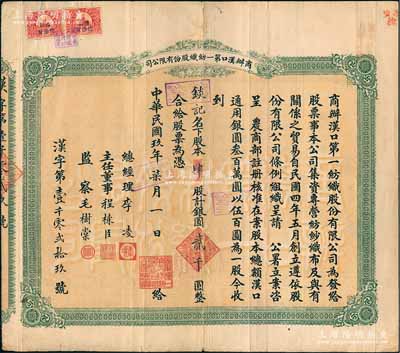 商辦漢口第一紡織股份有限公司
商辦漢口第一紡織股份有限公司為發給
股票事本公司集資專營紡紗織布及與有
關係之貿易自民國四年五月創立遵依股
份有限公司條例組織呈請 公署立案咨
呈 農商部註冊核准在案股本總額漢口
通用銀圓叁百萬圓以伍百圓為一股今收
到
鎮記名下股本肆股計銀圓貳千圓整
合給股票為憑
中華民國玖年柒月一日 給
總經理李凌
主任董事程棟臣
監察毛樹棠
漢字第壹千零貳拾玖號